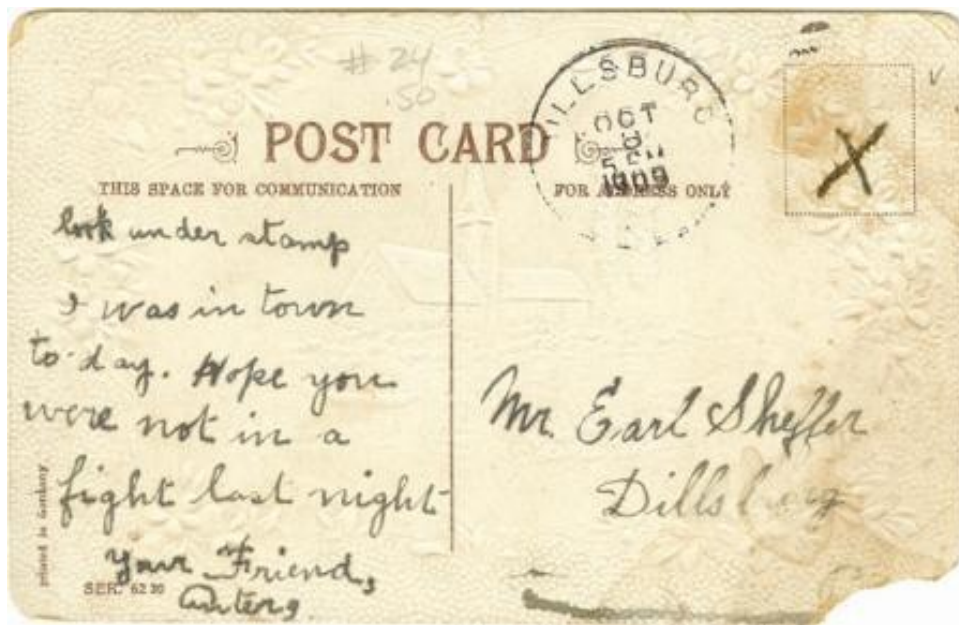 # 24
.50
POST CARD
THIS SPACE FOR COMMUNICATION
FOR ADDRESS ONLY
DILLSBURG
OCT
8
5 PM
1909
X
look under stamp
I was in town
to-day. Hope you
were not in a
fight last night
Your Friend,
Mr. Earl Sheffer
Dillsburg
printed in Germany
SER. 6220